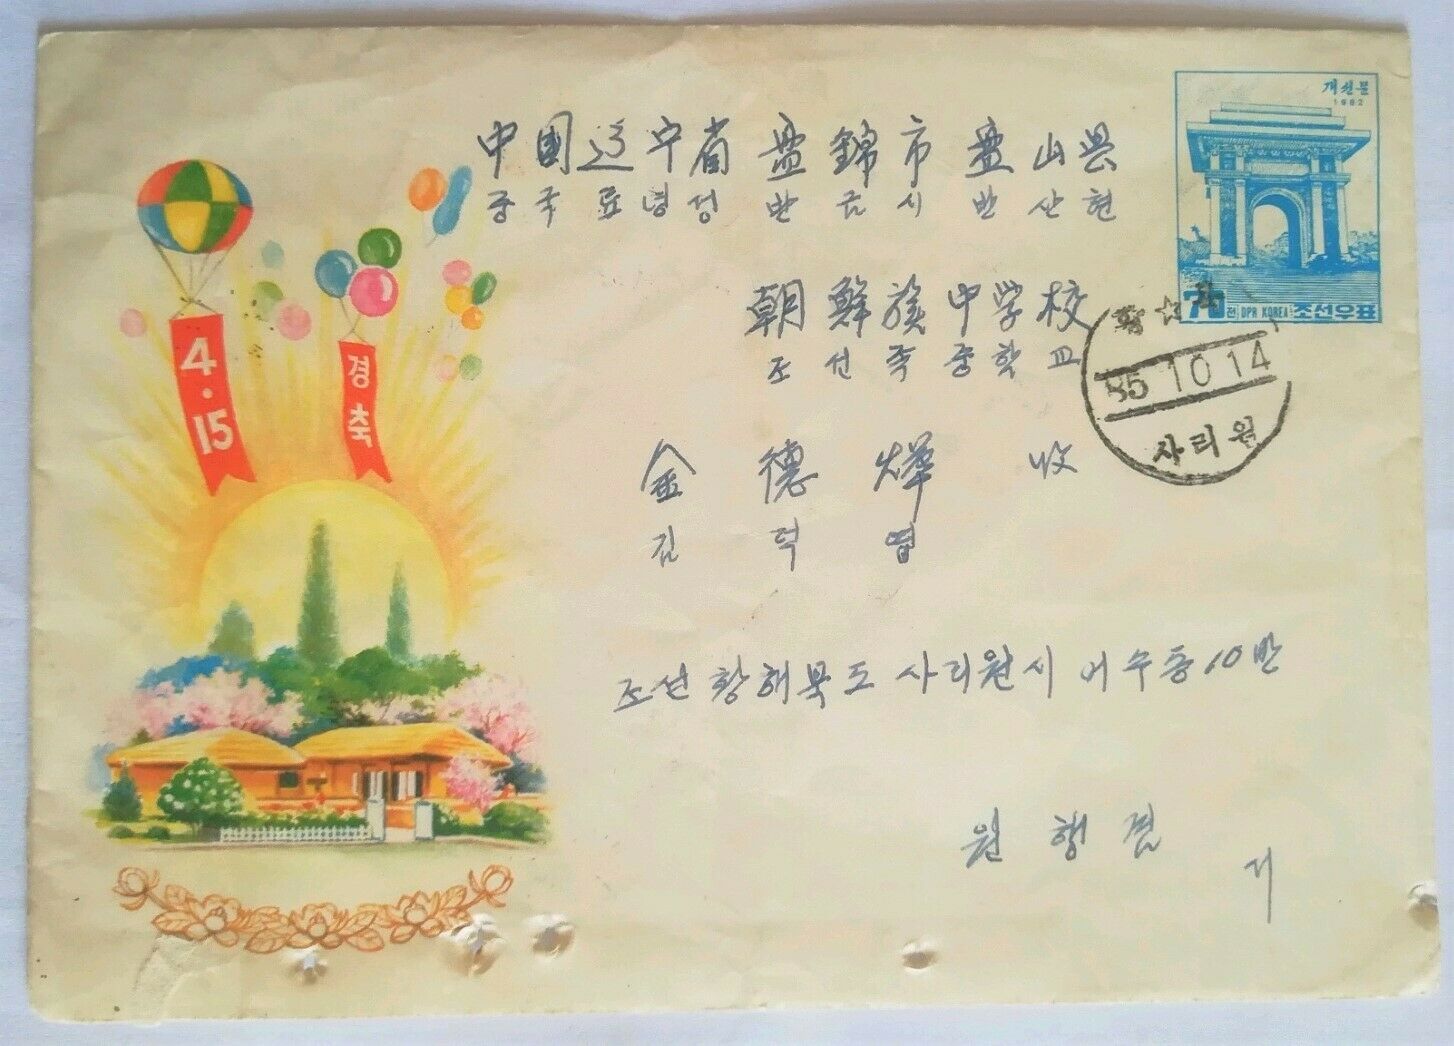 개선문
1982
70전 DPR KOREA 조선우표
中國辽宁省 盘錦市 盘山县
중국 료녕성 반금시 반산현
朝鮮族中学校
조선족중학교
金德燁 收
김덕엽
85 10 14
사리원
4·15
경축
조선 황해북도 사리원시 어수동 10반
원형